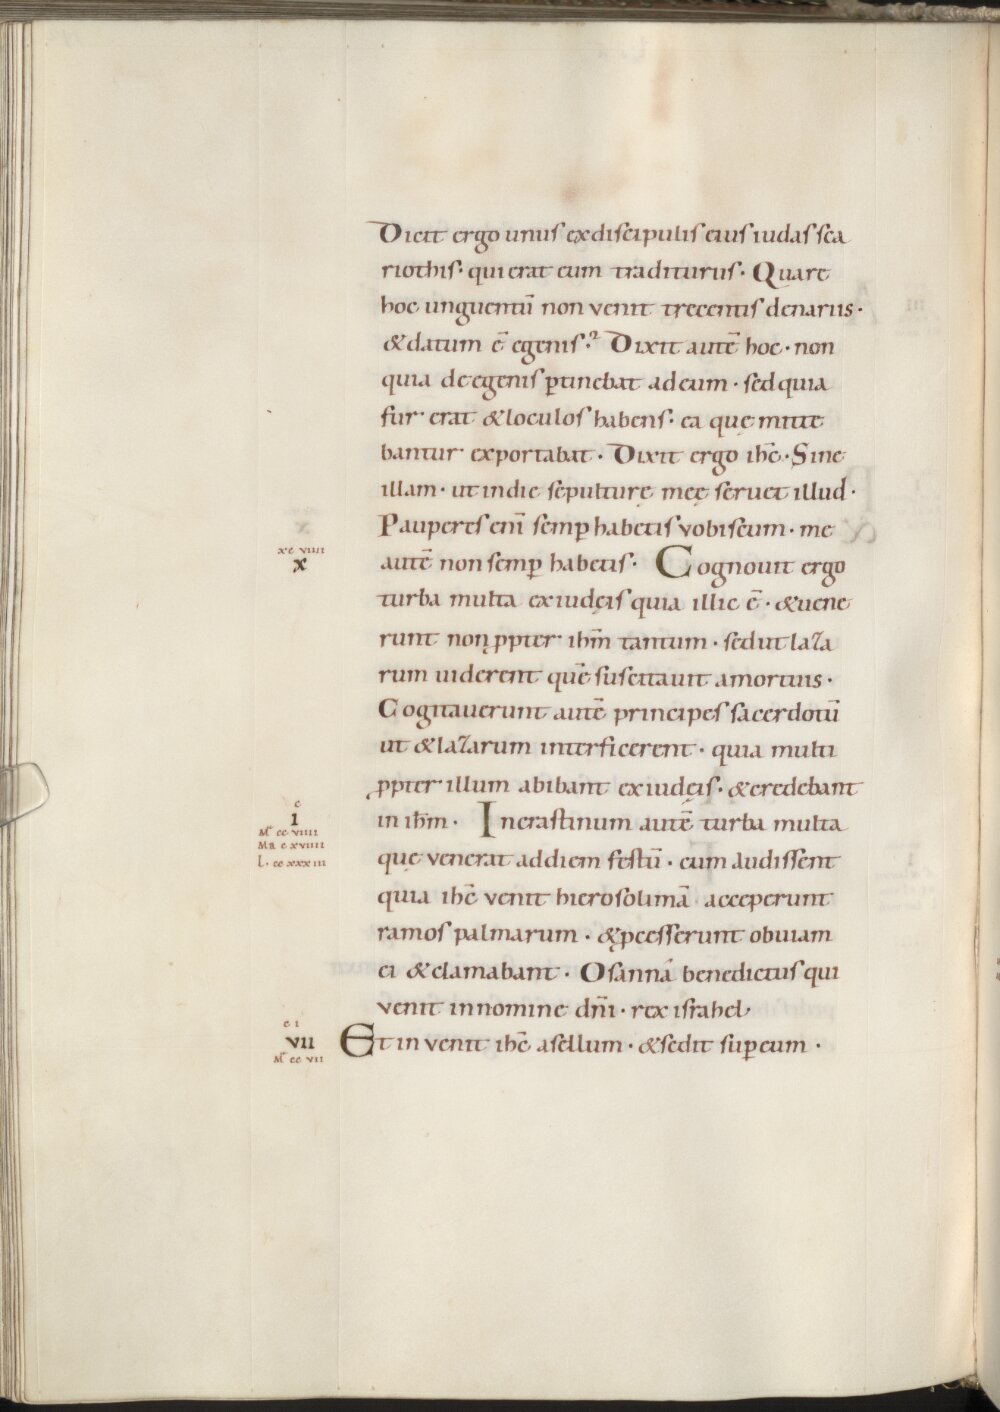 Dicit ergo unus ex discipulis eius iudas sca
riothis· qui erat eum traditurus· Quare
hoc unguentū non venit trecentis denariis·
& datum ē egenis·? Dixit autē hoc· non
quia de egenis ꝑtinebat ad eum· sed quia
fur erat & loculos habens· ea quę mitte
bantur exportabat· Dixit ergo ihc̄· Sine
illam· ut in die sepulturę meę servet illud·
Pauperes enī semꝑ habetis vobiscum· me
xc viiii
x
autē non semꝑ habetis· Cognovit ergo
turba multa ex iudęis quia illic ē· & uene
runt non ꝓpter ihm̄ tantum· sed ut laza
rum uiderent quē suscitavit a mortuis·
Cogitaverunt autē principes sacerdotū
ut & lazarum interficerent· quia multi
ꝓpter illum abibant ex iudęis· & credebant
c
I
Mr cc viiii
Ma c xviiii
L· cc xxxiii
in ihm̄· In crastinum autē turba multa
quę venerat ad diem festū· cum audissent
quia ihc̄ venit hierosolimā acceperunt
ramos palmarum· & ꝓcesserunt obviam
ei & clamabant· Osanna benedictus qui
venit in nomine dn̄i· rex israhel·
c i
VII
Mt cc vii
Et inuenit ihc̄ asellum· & sedit suꝑ eum·